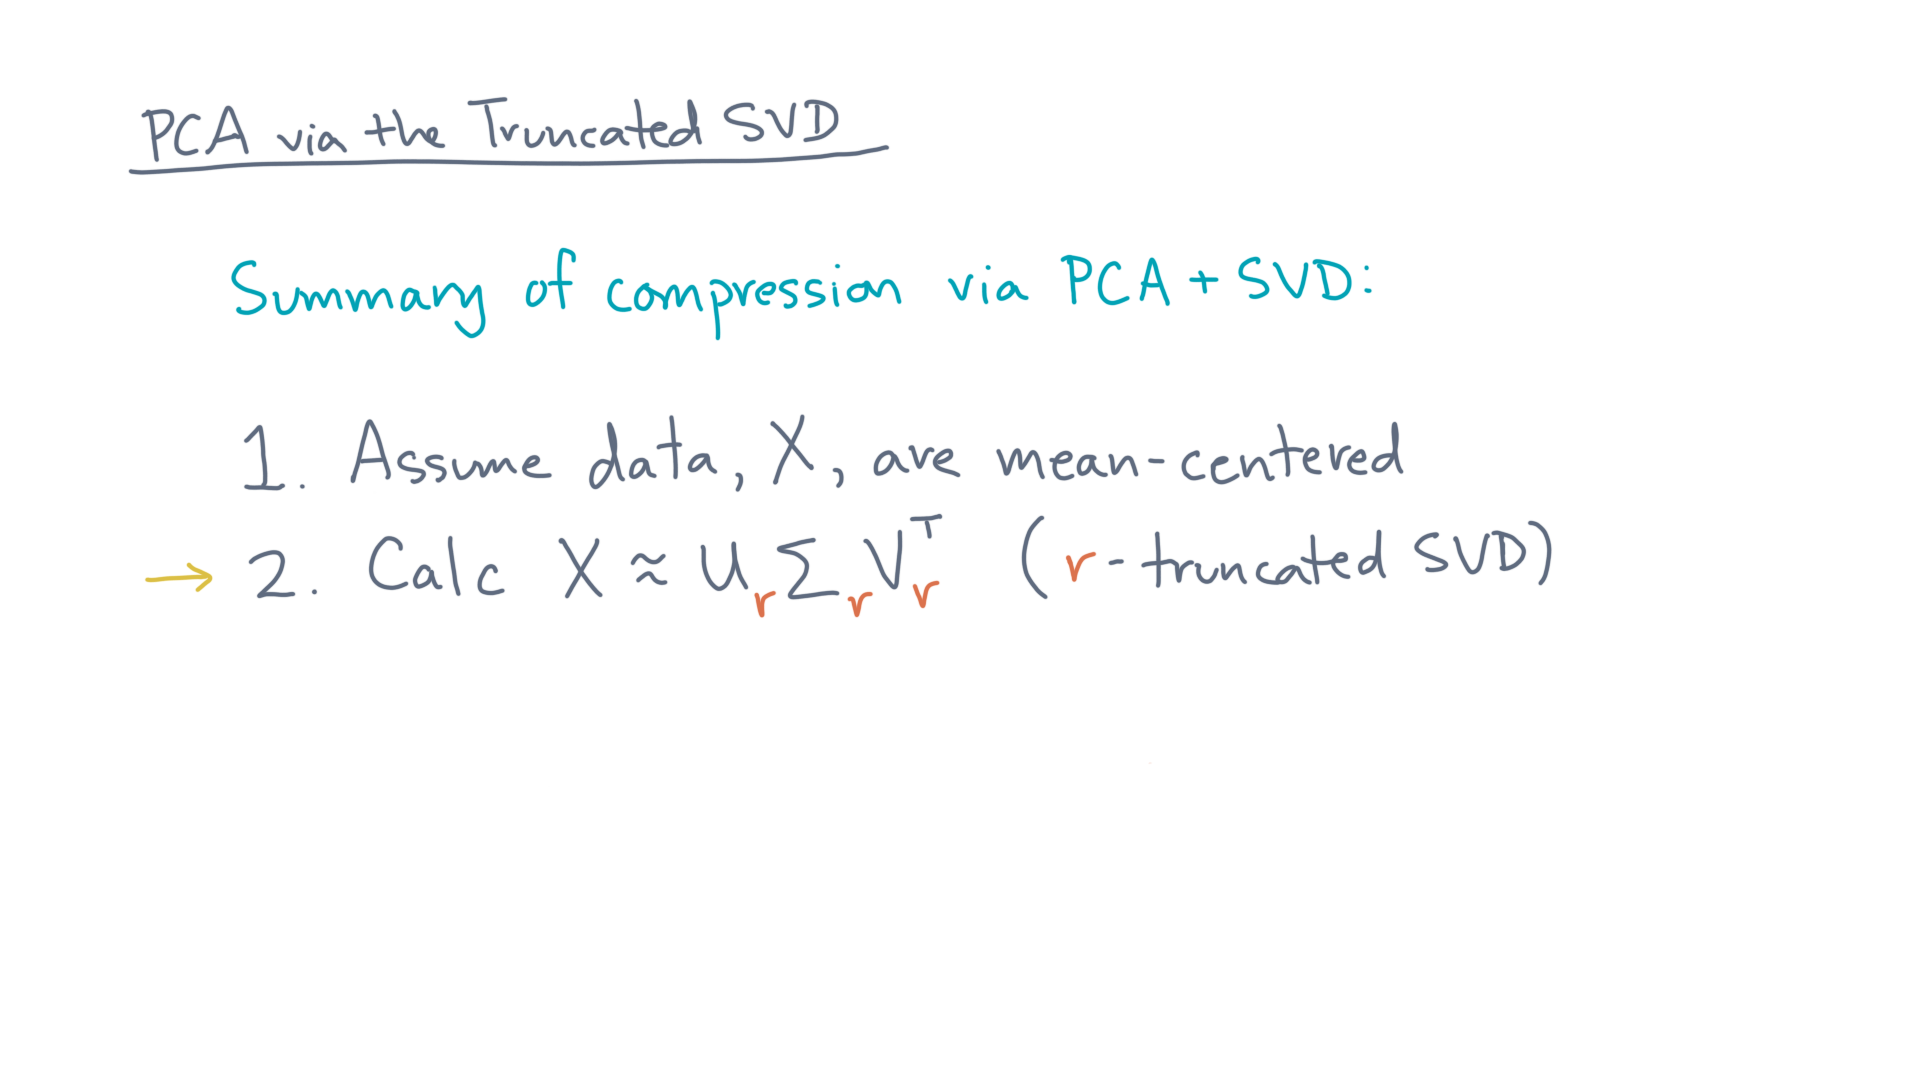 PCA via the Truncated SVD
Summary of compression via PCA + SVD:
1. Assume data, X, are mean-centered
→ 2. Calc X ≈ UᵣΣᵣVᵣᵀ (r-truncated SVD)